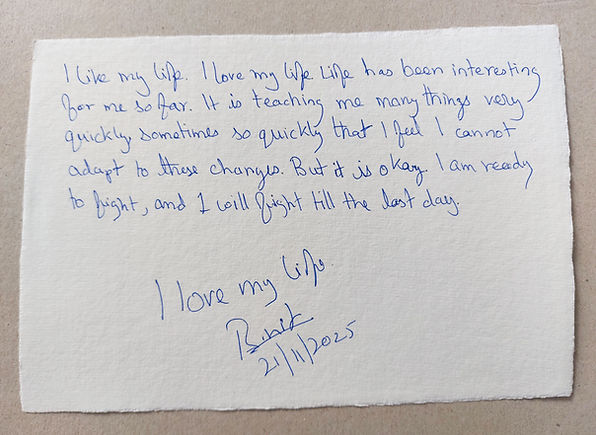 I like my life. I love my life Life has been interesting
for me so far. It is teaching me many things very
quickly, sometimes so quickly that I feel I cannot
adapt to these changes. But it is okay. I am ready
to fight, and I will fight till the last day.
I love my life.
Binit
21/11/2025